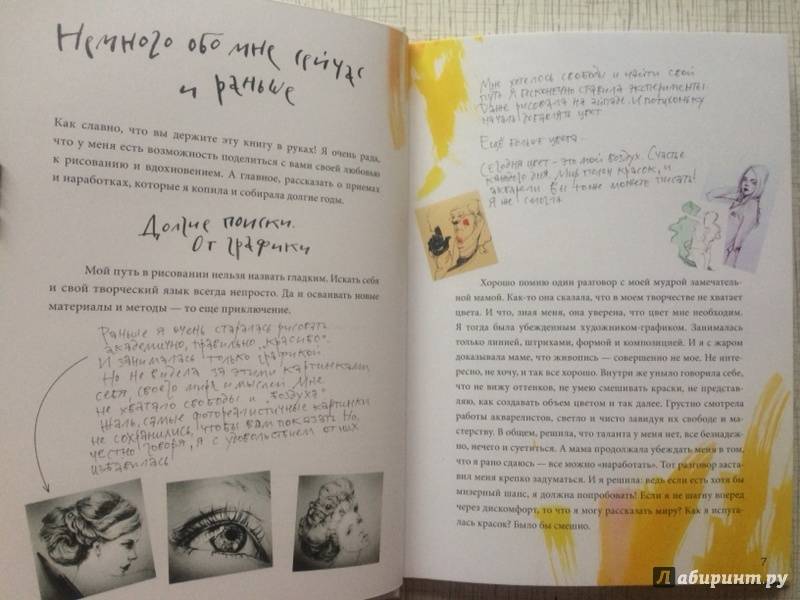 Немного обо мне сейчас
и раньше
Как славно, что вы держите эту книгу в руках! Я очень рада,
что у меня есть возможность поделиться с вами своей любовью
к рисованию и вдохновением. А главное, рассказать о приемах
и наработках, которые я копила и собирала долгие годы.
Долгие поиски.
От графики
Мой путь в рисовании нельзя назвать гладким. Искать себя
и свой творческий язык всегда непросто. Да и осваивать новые
материалы и методы — то еще приключение.
Раньше я очень старалась рисовать
академично, правильно, „красиво“.
И занималась только графикой
Но не видела за этими картинками
себя, своего мира и мыслей. Мне
не хватало свободы и „воздуха“
Жаль, самые фотореалистичные картинки
не сохранились, чтобы вам показать. Но,
честно говоря, я с удовольствием от них
избавилась
Мне хотелось свободы и найти свой
путь. Я бесконечно ставила эксперименты.
Даже рисовала на айпаде. И потихоньку
начала добавлять цвет
Ещё больше цвета...
Сегодня цвет - это мой воздух. Счастье
каждого дня. Мир полон красок, и
акварели. Вы тоже можете писать!
Я же смогла
Хорошо помню один разговор с моей мудрой замечатель-
ной мамой. Как-то она сказала, что в моем творчестве не хватает
цвета. И что, зная меня, она уверена, что цвет мне необходим.
Я тогда была убежденным художником-графиком. Занималась
только линией, штрихами, формой и композицией. И я с жаром
доказывала маме, что живопись — совершенно не мое. Не инте-
ресно, не хочу, и так все хорошо. Внутри же уныло говорила себе,
что не вижу оттенков, не умею смешивать краски, не представ-
ляю, как создавать объем цветом и так далее. Грустно смотрела
работы акварелистов, светло и чисто завидуя их свободе и ма-
стерству. В общем, решила, что таланта у меня нет, все безнадеж-
но, нечего и суетиться. А мама продолжала убеждать меня в том,
что я рано сдаюсь — все можно «наработать». Тот разговор заста-
вил меня крепко задуматься. И я решила: ведь если есть хотя бы
мизерный шанс, я должна попробовать! Если я не шагну вперед
через дискомфорт, то что я могу рассказать миру? Как я испуга-
лась красок? Было бы смешно.
7
Лабиринт.ру